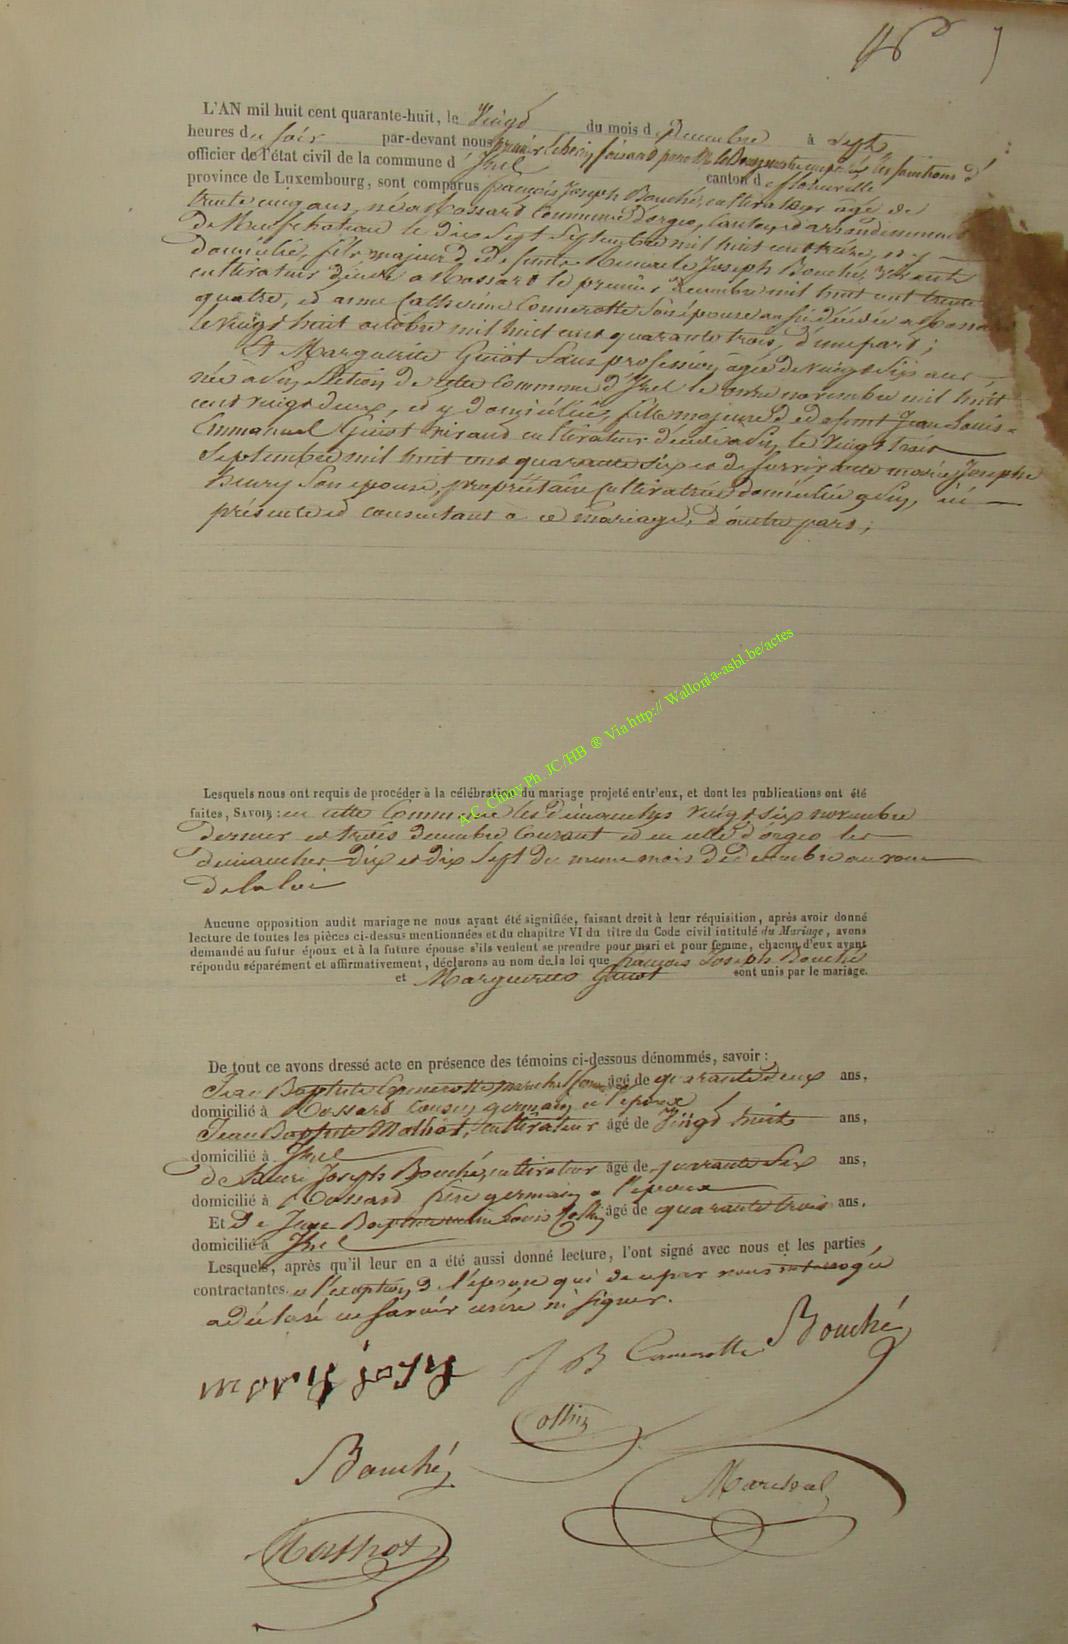 16
L'AN mil huit cent quarante-huit, le Vingt du mois de Decembre à Sept
heures du soir par-devant nous premier Echevin faisant pour Mr le Bourgmestre les fonctions d'
officier de l'état civil de la commune d'Izel canton de florenville
province de Luxembourg, sont comparus françois Joseph Bouché, cultivateur âgé de
trente cinq ans, né à Rossard Commune d'orgeo, Canton et arrondissement
de Neufchateau le dix Sept Septembre mil huit cent treize, et y
domicilié, fils majeur d Joseph Bouché,
cultivateur décédé à Rossard le premier Decembre mil huit cent trente
quatre, et anne Catherine Connerotte Son épouse aussi décédée à Rossard
le vingt huit octobre mil huit cent quarante trois, d'une part;
Et Marguerite Guiot Sans profession, âgée de vingt Six ans
née à Pin, Section de cette Commune d'Izel le onze novembre mil huit
cent vingt deux, et y domiciliée, fille majeure d defunt Jean Louis
Emmanuel Guiot vivant cultivateur décédé à Pin, le vingt trois
Septembre mil huit cent quarante Six et de Survivante marie Josephe
henry Son épouse, propriétaire Cultivatrice domiciliée à Pin, ici
présente et consentant à ce mariage, d'autre part;
Lesquels nous ont requis de procéder à la célébration du mariage projeté entr'eux, et dont les publications ont été
faites, SAVOIR: en cette Commune les dimanches vingt six novembre
dernier et trois decembre Courant et en celle d'orgeo les
dimanches dix et dix Sept du meme mois de decembre au voeu
de la loi
Aucune opposition audit mariage ne nous ayant été signifiée, faisant droit à leur réquisition, après avoir donné
lecture de toutes les pièces ci-dessus mentionnées et du chapitre VI du titre du Code civil intitulé du Mariage, avons
demandé au futur époux et à la future épouse s'ils veulent se prendre pour mari et pour femme, chacun d'eux ayant
répondu séparément et affirmativement, déclarons au nom de la loi que françois Joseph Bouché
et Marguerite Guiot sont unis par le mariage.
De tout ce avons dressé acte en présence des témoins ci-dessous dénommés, savoir:
Jean Baptiste Connerotte, âgé de quarante deux ans,
domicilié à Rossard Cousin germain à l'époux
Jean Baptiste Mathot, cultivateur âgé de Vingt huit ans,
domicilié à Izel
de henri Joseph Bouché, cultivateur âgé de quarante Six ans,
domicilié à Rossard frère germain à l'époux
Et de Jean Baptiste Louis Collin âgé de quarante trois ans,
domicilié à Izel
Lesquels, après qu'il leur en a été aussi donné lecture, l'ont signé avec nous et les parties
contractantes. à l'exception de l'épouse qui de ce par nous interrogée
a déclaré ne Savoir écrire ni Signer.
J B Connerotte Bouché
Collin
Bouché
Marechal
Mathot
A.C. Chiny Ph. JC/HB ® Via http:// Wallonia-asbl.be/actes